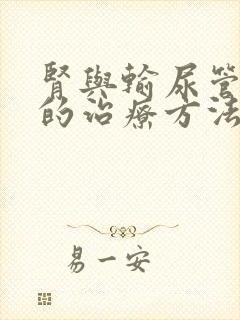 腎與輸尿管
的治療方法
易一安